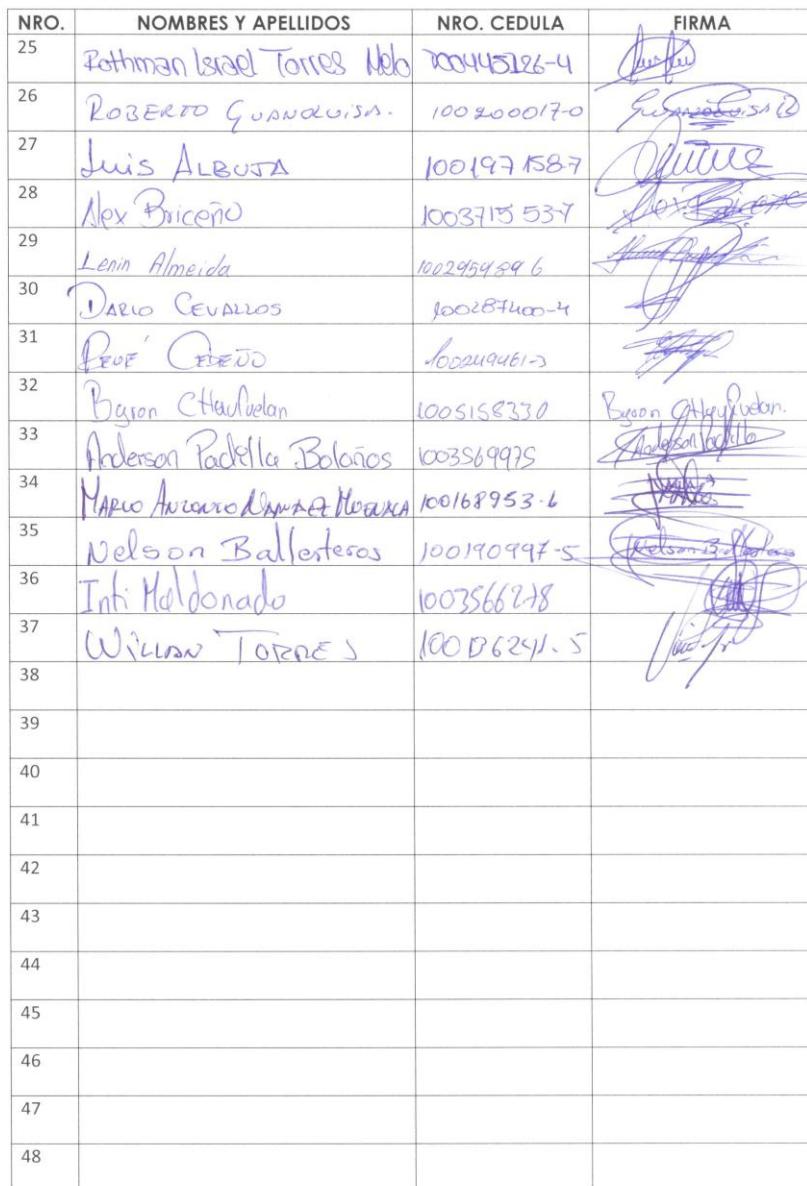 NRO. NOMBRES Y APELLIDOS NRO. CEDULA FIRMA
25 Rothman Israel Torres Melo 100445126-4
26 ROBERTO GUANOLUISA. 100200017-0 GUANOLUISA
27 Luis ALBUJA 100197158-7
28 Alex Briceño 100371553-7 Alex Briceño
29 Lenin Almeida 100295489 6
30 DARIO CEVALLOS 100287400-4
31 RENE CEDEÑO 100249461-3
32 Byron 1005158330 Byron
33 Anderson Padilla Bolaños 1003569975 Anderson Padilla
34 MARCO ANTONIO 100168953-6
35 Nelson Ballesteros 100190997-5 Nelson Ballesteros
36 Inti Maldonado 1003566278
37 WILLIAN TORRES 100136241-5
38
39
40
41
42
43
44
45
46
47
48